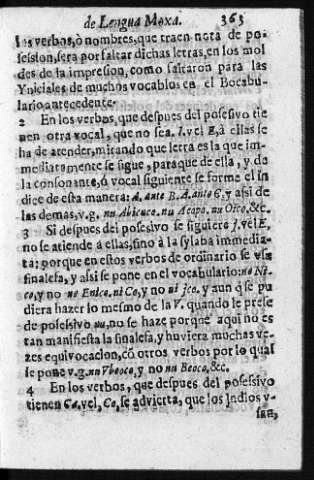 de Lengua Moxa. 363
los verbos, ò nombres, que traen nota de po-
session, sera por faltar dichas letras, en los mol
des de la impresion, como faltaron para las
Yniciales de muchos vocablos en el Bocabu-
lario antecedente.
2 En los verbos, que despues del posesivo tie
nen otra vocal, que no sea. I. vel E, à ellas se
ha de atender, mirando que letra es la que im-
mediatamente se sigue, para que de ella, y de
la consonante, ó vocal siguiente se forme el in
dice de esta manera: A. ante B. A. ante C, y asi de
las demas, v. g. nu Abicuco. nu Acopo. nu Oico. &c.
3 Si despues del posesivo se siguiere J. vel E,
no se atiende à ellas, sino à la sylaba immedia-
ta: porque en estos verbos de ordinario se usa
sinalefa, y assi se pone en el vocabulario: no Ni-
co, y no no Enico. ni Co, y no ni jco. y aun q̃ se pu
diera hazer lo mesmo de la V. quando le prese
de posessivo nu, no se haze porque aqui no es
tan manifiesta la sinalefa, y huviera muchas ve-
zes equivocacion, cõ otros verbos por lo qual
se pone v. g. nu Vboco, y no nu Boco, &c.
4 En los verbos, que despues del posessivo
tienen Ca, vel, Co, se advierta, que los Jndios v-
san,